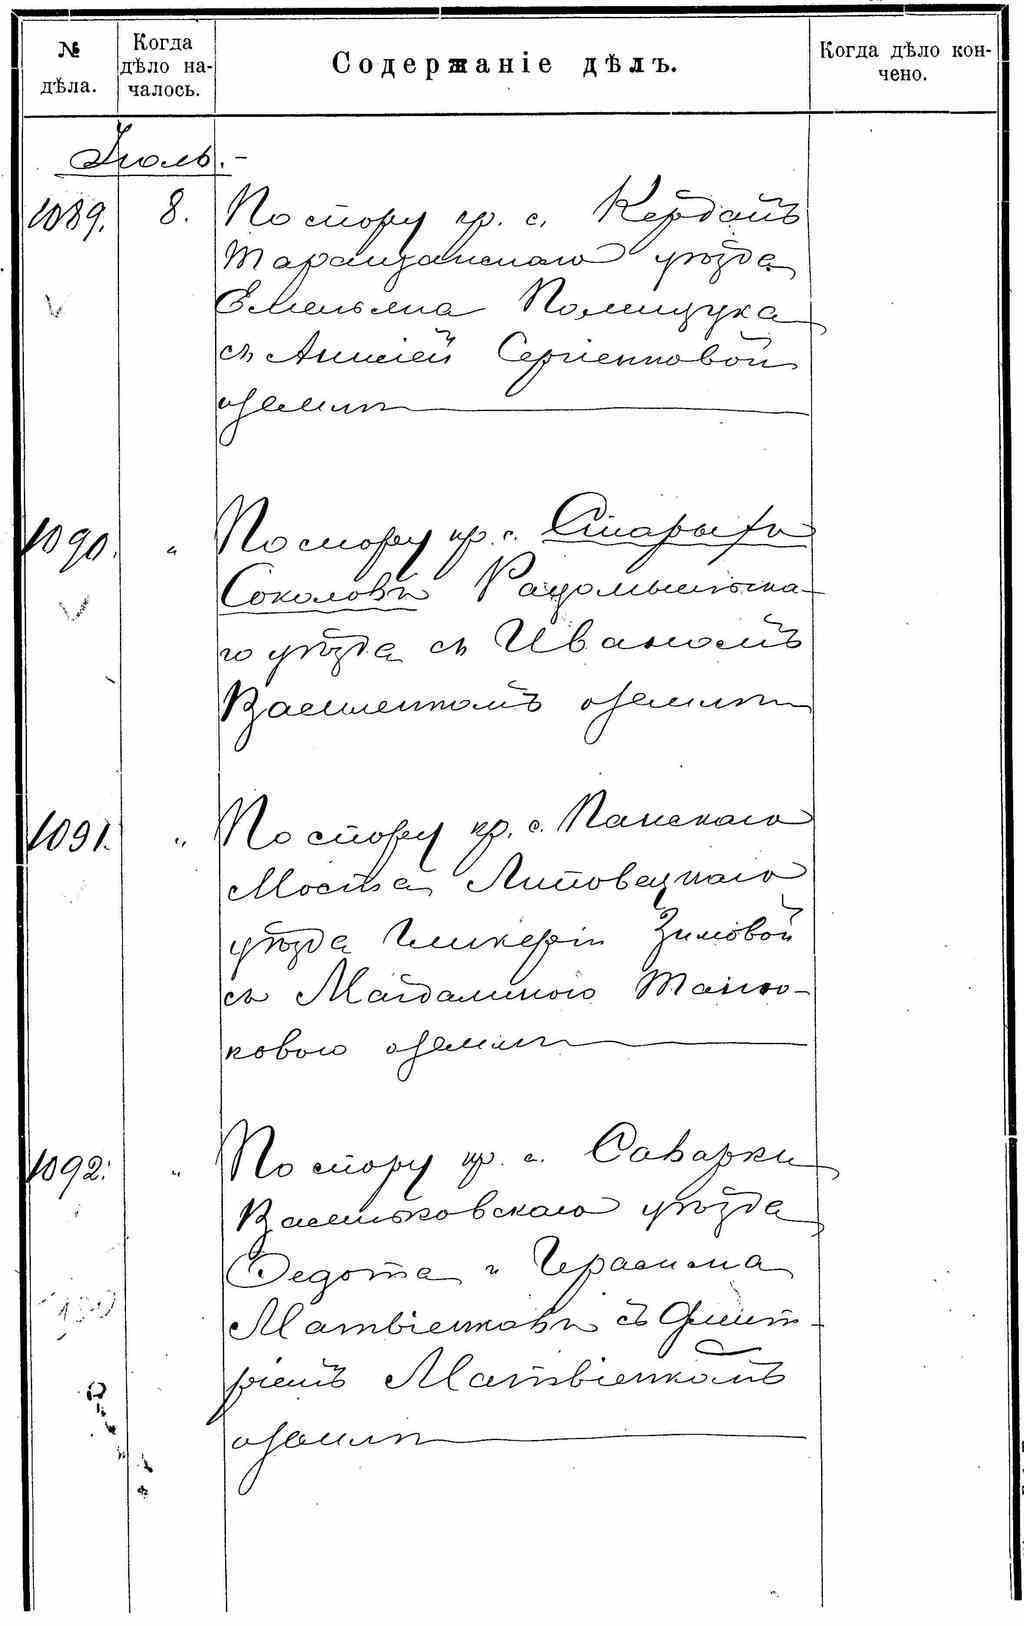 № дѣла.
Когда дѣло началось.
Содержаніе дѣлъ.
Когда дѣло кончено.
Іюль.-
1089. 8. По спору кр. с. Кердонъ
Таращанскаго уѣзда
Емельяна Полищука
съ Анисіей Сергіенковой
о землѣ
1090. " По спору кр. с. Старыхъ
Соколовъ Радомысльска-
го уѣзда съ Иваномъ
Василенкомъ о землѣ
1091. " По спору кр. с. Панскаго
Моста Липовецкаго
уѣзда Гликеріи Зимовой
съ Магдалиною Танцю-
ковою о землѣ
1092. " По спору кр. с. Саварки
Васильковскаго уѣзда
Федота и Герасима
Матвіенковъ съ Дмит-
ріемъ Матвіенкомъ
о землѣ